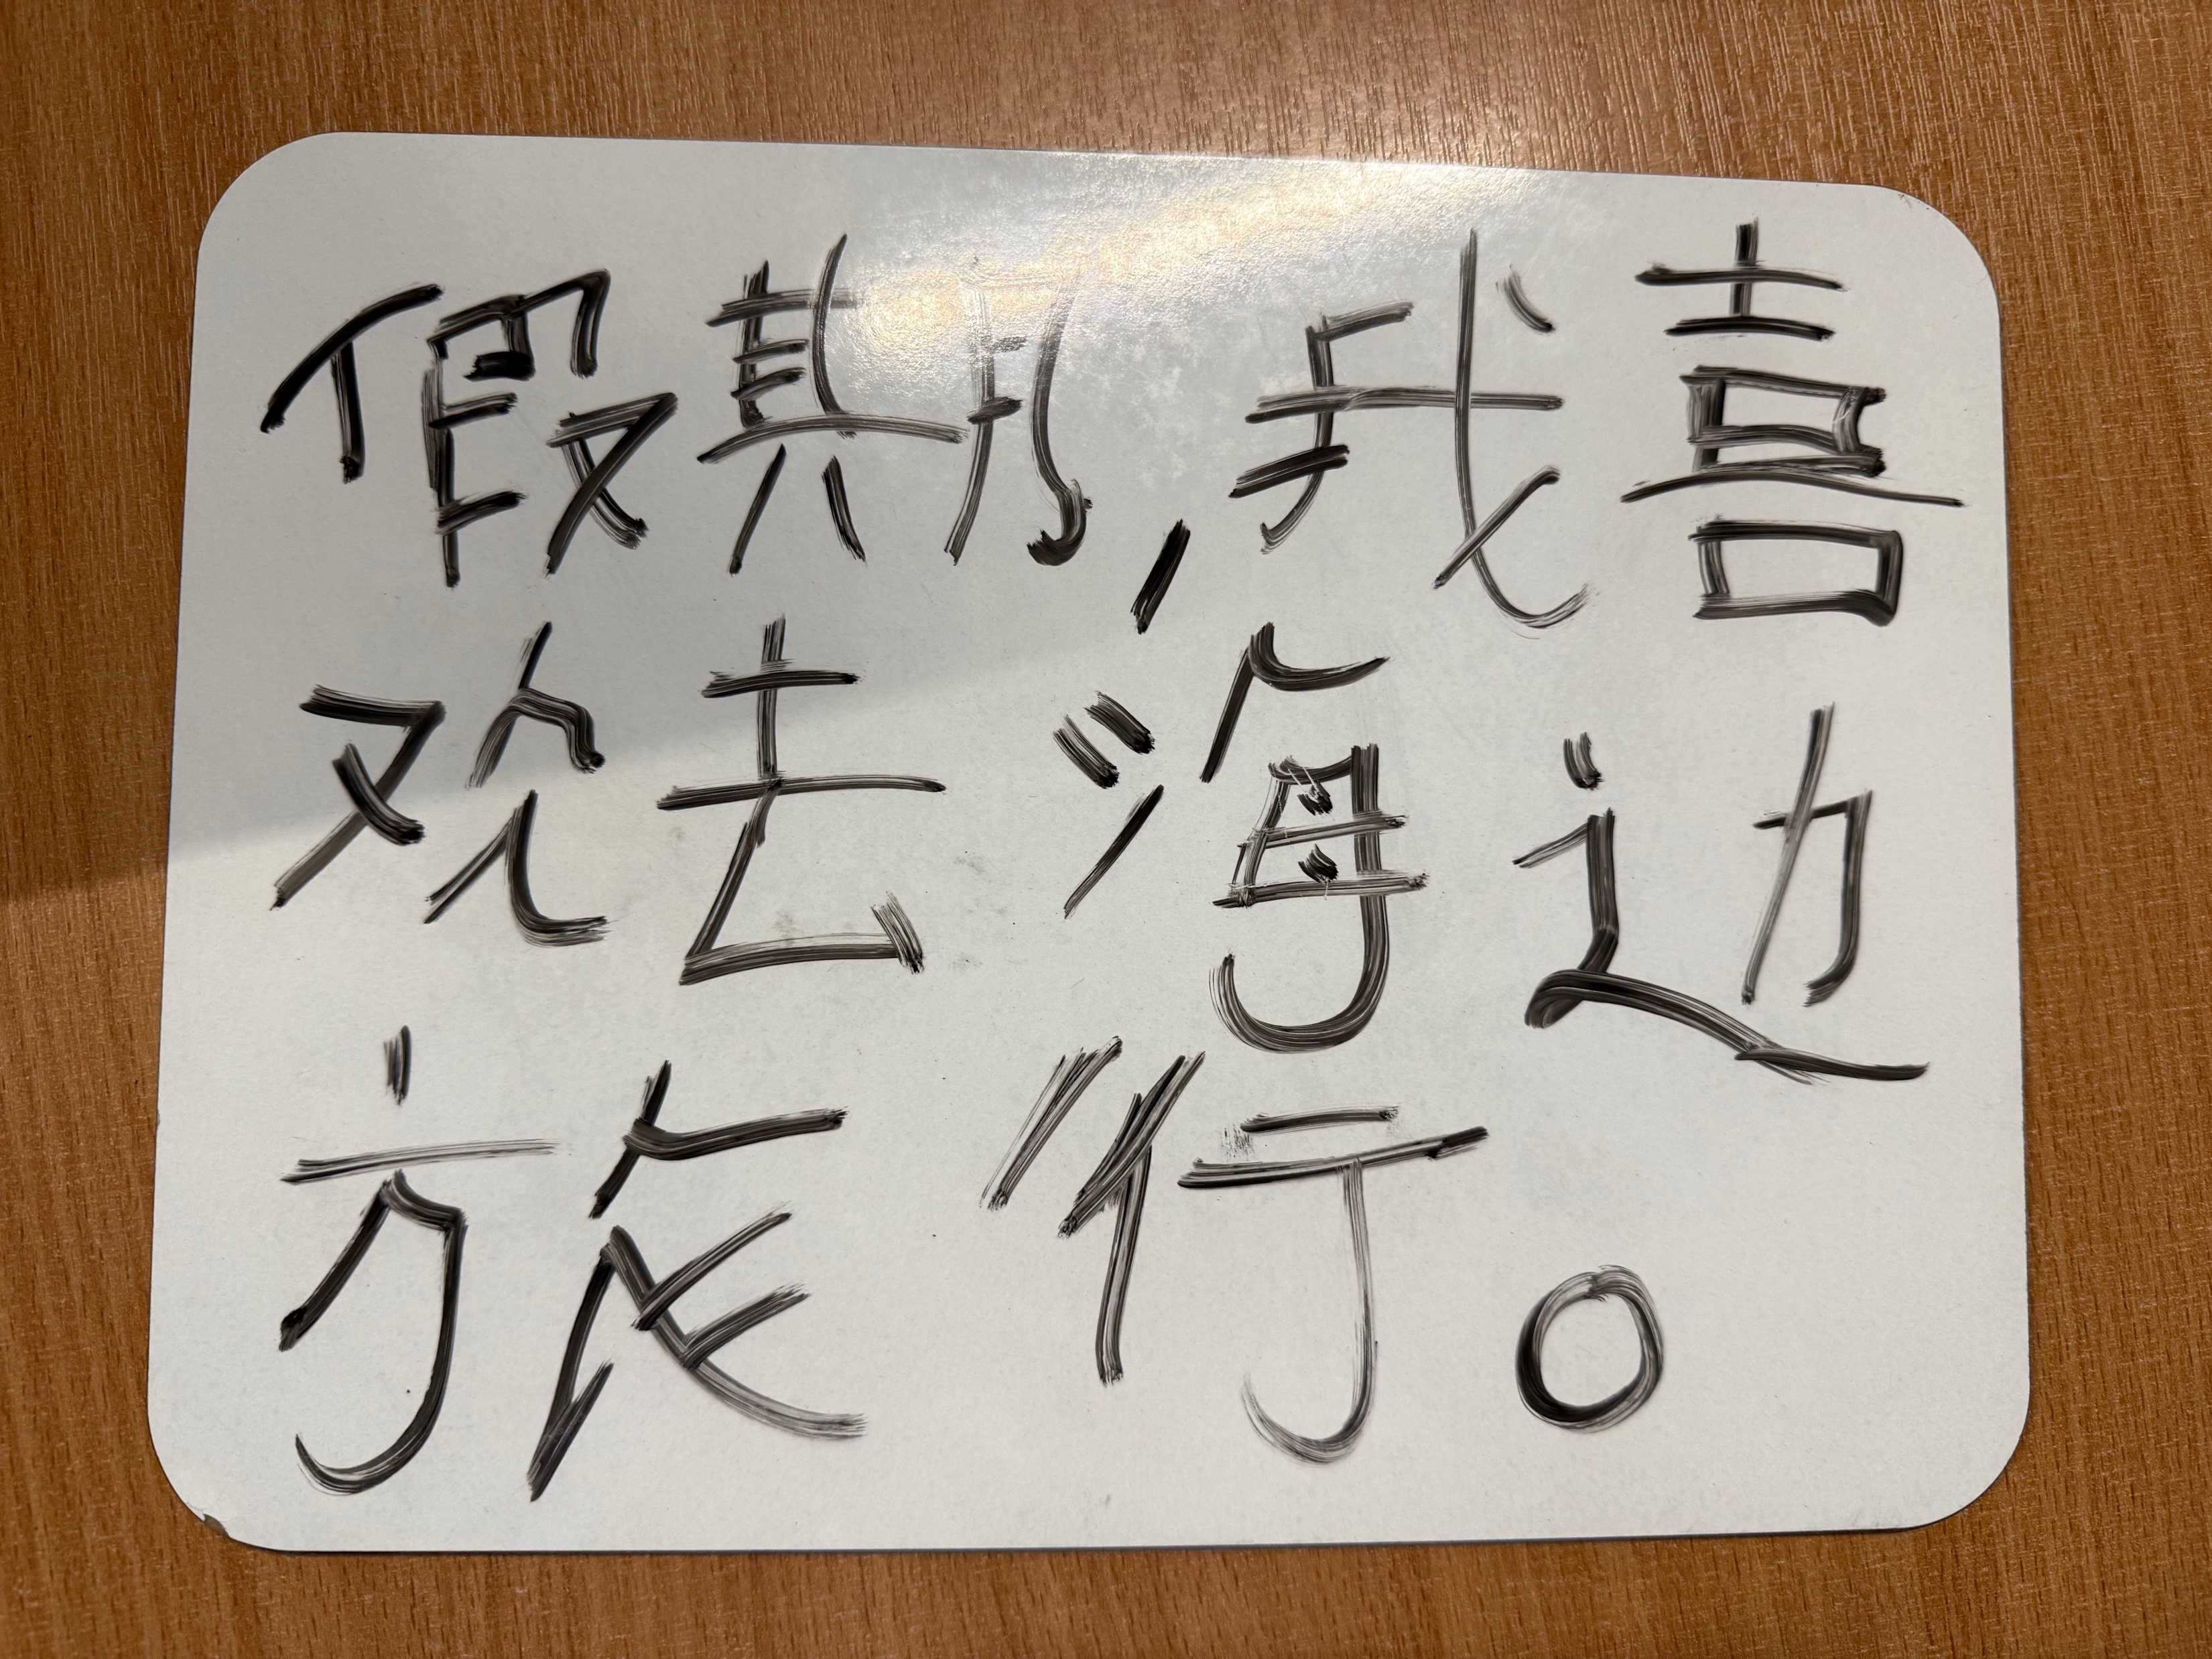 假期,我喜
欢去海边
旅行。